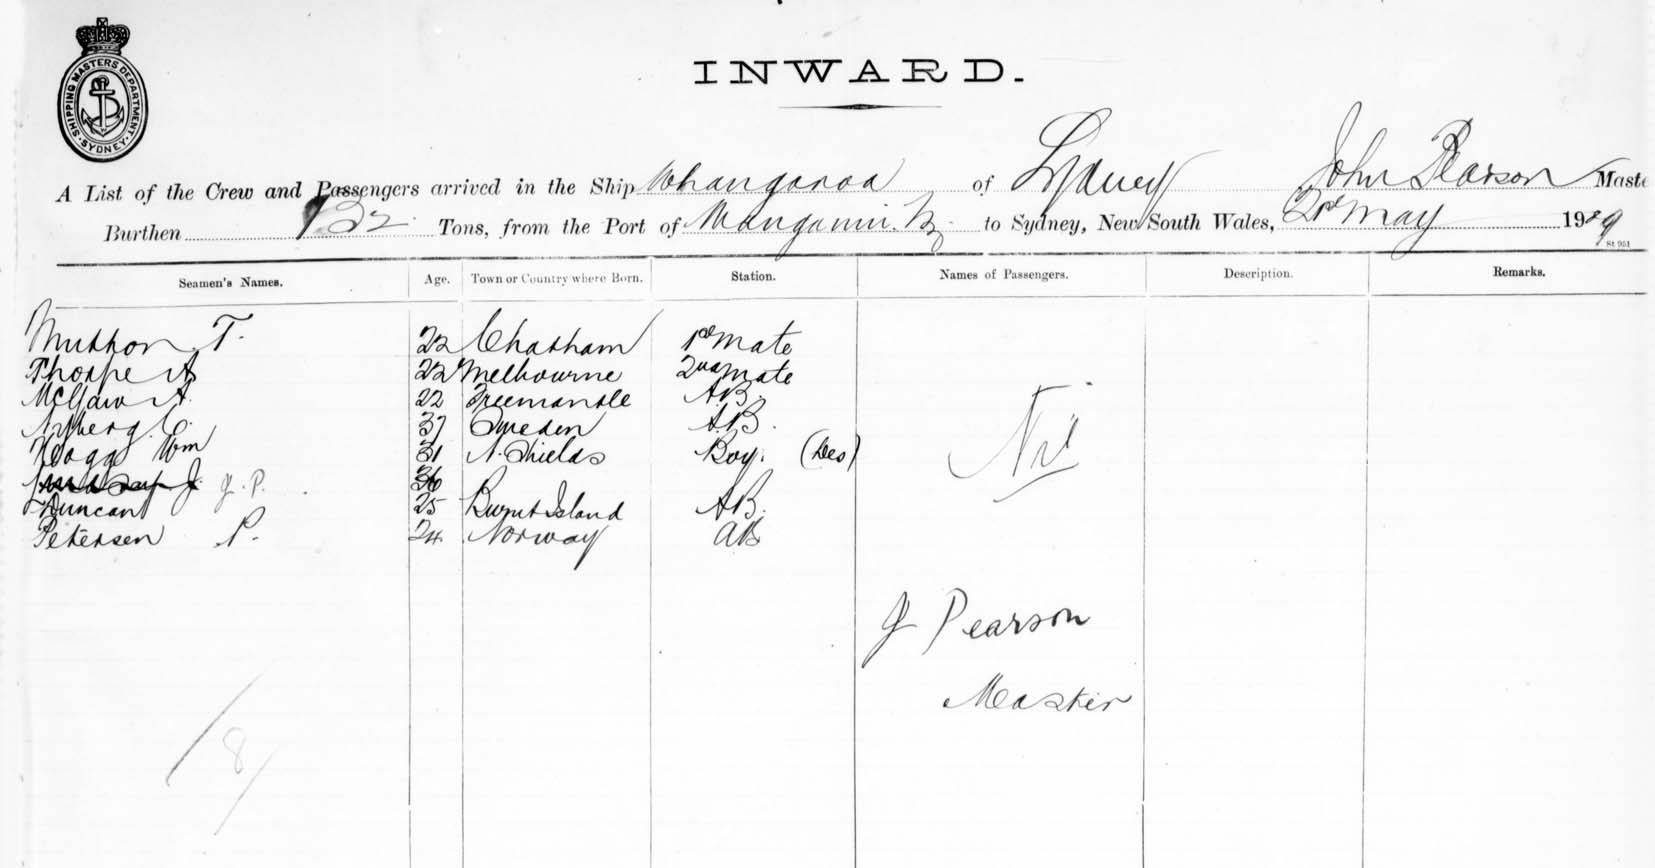 SHIPPING MASTERS DEPARTMENT
SYDNEY
INWARD.
A List of the Crew and Passengers arrived in the Ship Whangaroa of Sydney John Pearson Maste
Burthen 132 Tons, from the Port of to Sydney, New South Wales, 2nd May 1909
St 951
Seamen's Names. Age. Town or Country where Born. Station. Names of Passengers. Description. Remarks.
T. 22 Chatham 1st Mate
Thorpe A 22 Melbourne 2nd Mate
A. 22 Freemantle A.B.
C. 37 Sweden A.B.
Hogg Wm 31 N. Shields Boy. (Des)
J. J. P. 36
Duncan 25 Burnt Island A.B.
Petersen P. 24 Norway AB
Nil
J Pearson
Master
/8/